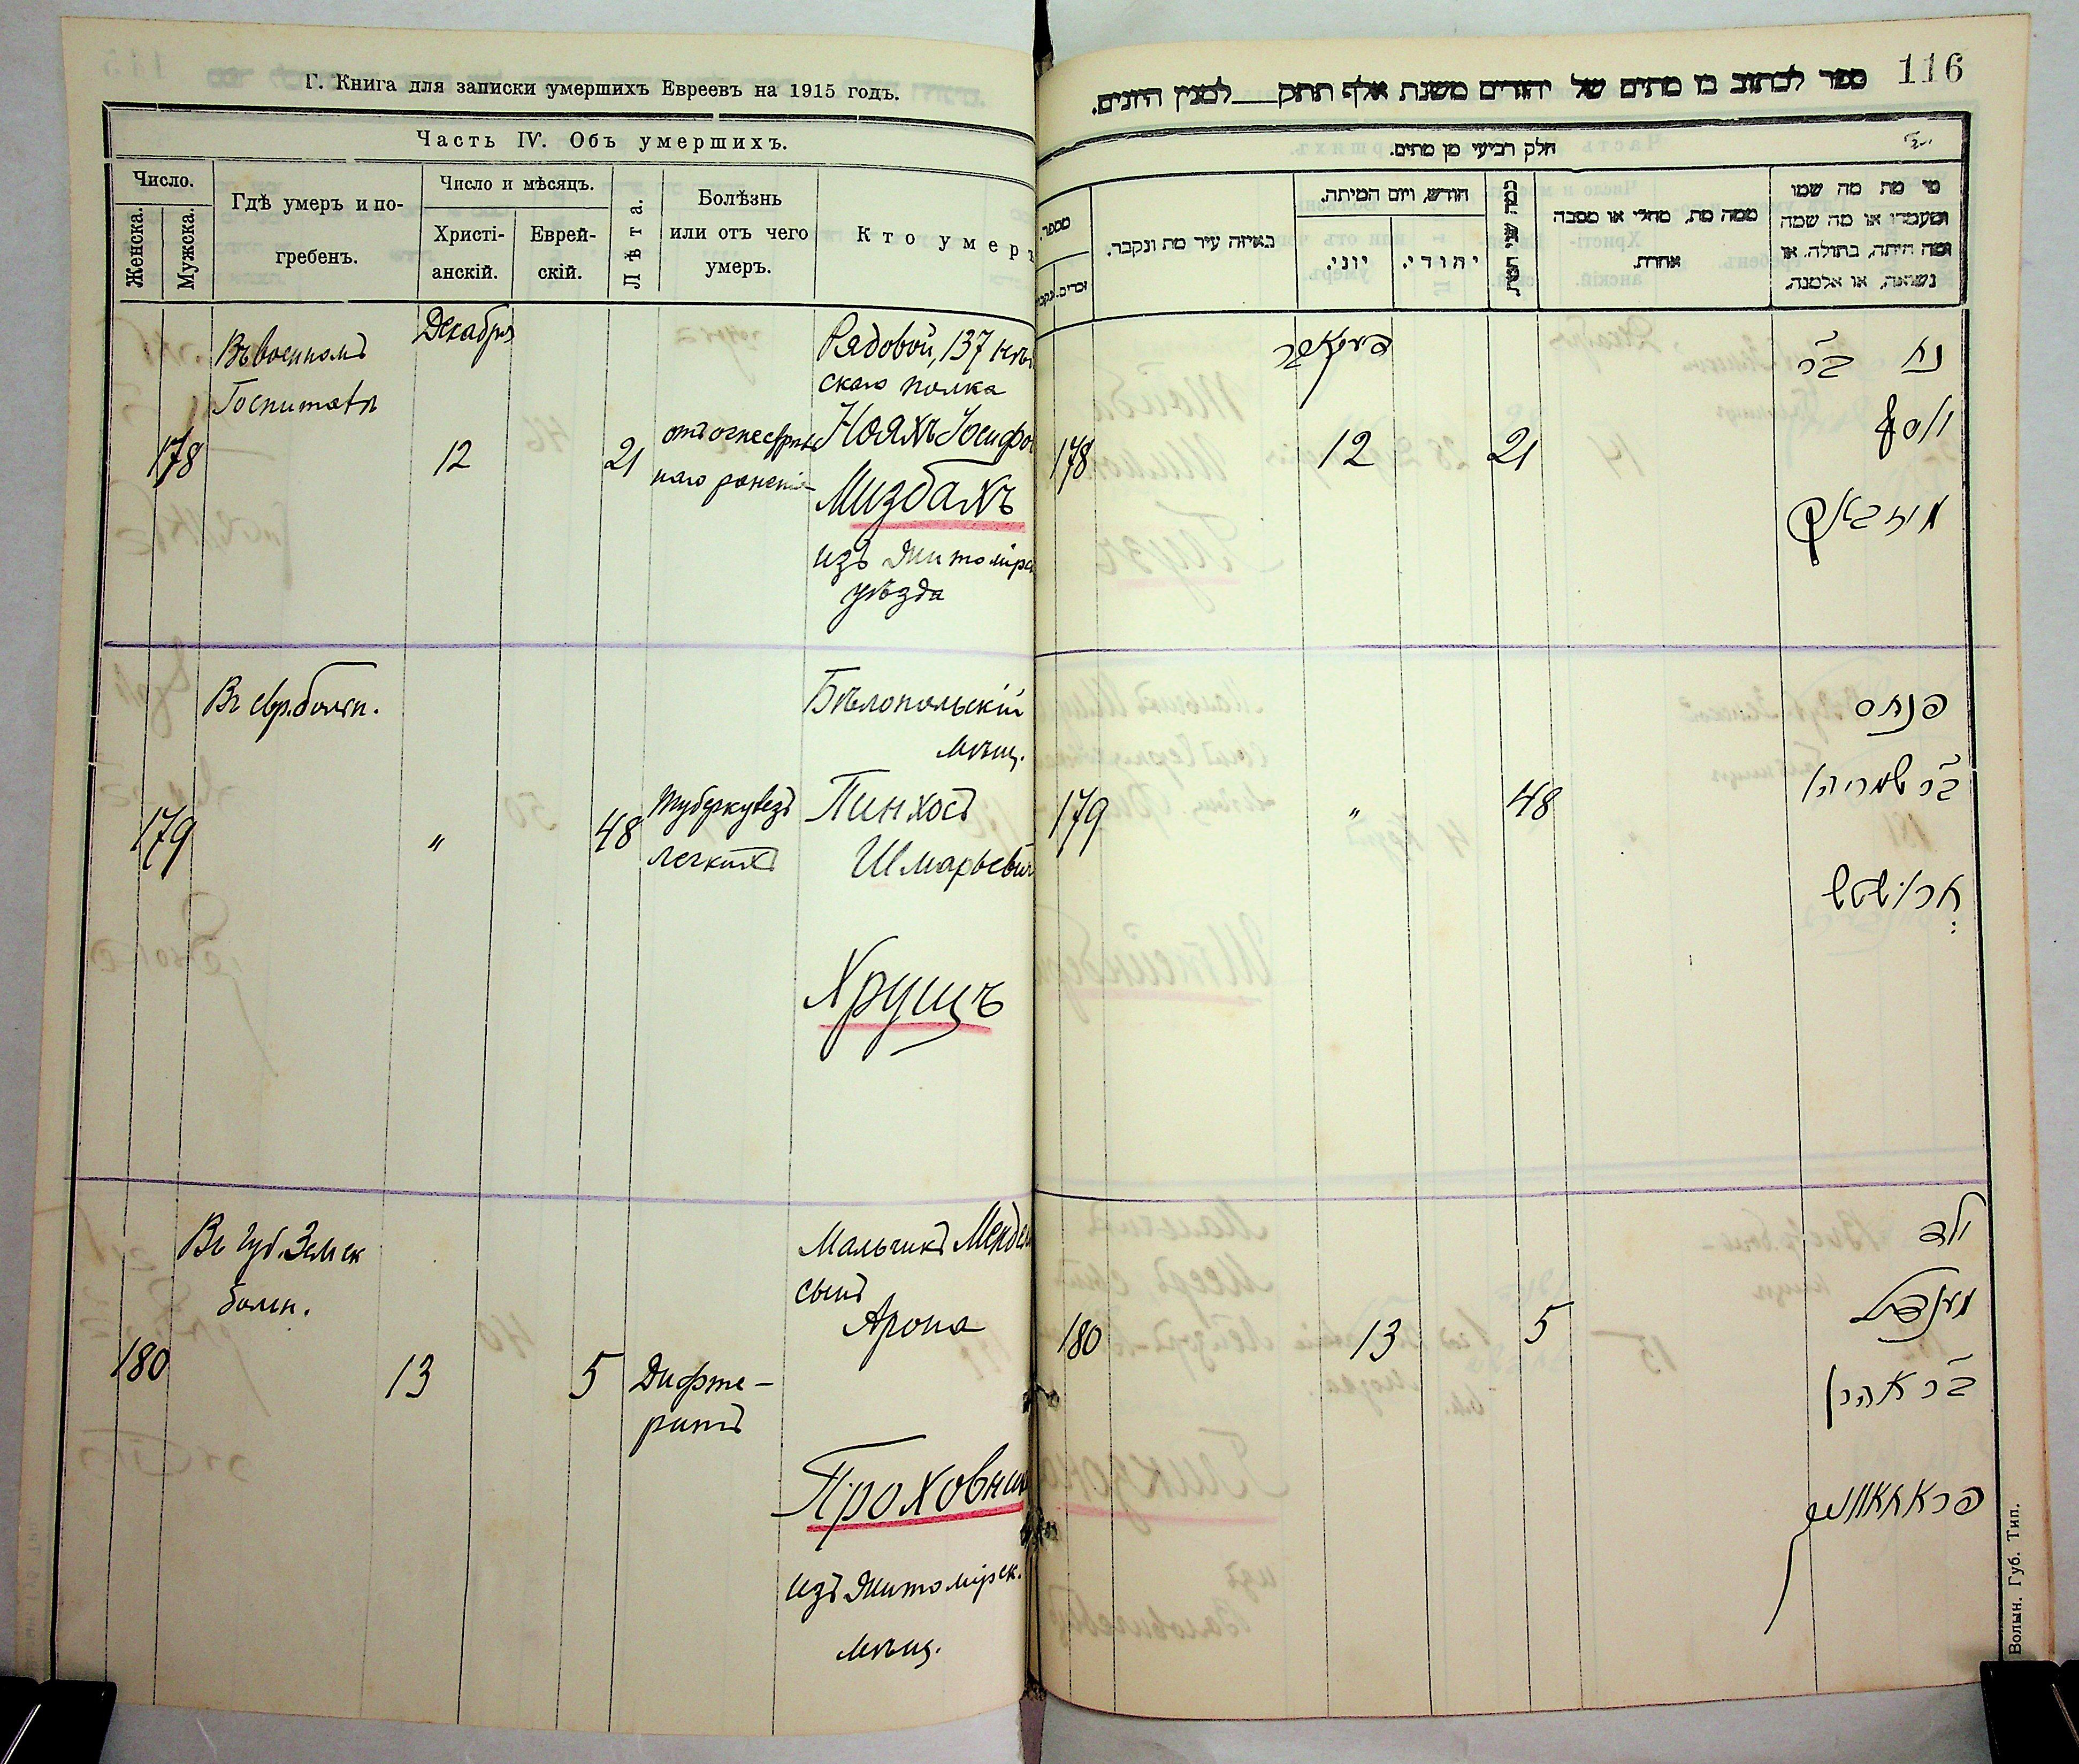 Г. Книга для записки умершихъ Евреевъ на 1915 годъ.
Часть IV. Объ умершихъ.
Число.
Женска.
Мужска.
Гдѣ умеръ и по-
гребенъ.
Число и мѣсяцъ.
Христі-
анскій.
Еврей-
скій.
Лѣта.
Болѣзнь
или отъ чего
умеръ.
Кто умеръ
Въ военномъ
Госпиталѣ
178
Декабря
12
21
отъ огнестрѣль
наго раненія
Рядовой, 137
скаго полка
Нояхъ Іосифов
Мизбахъ
изъ Житомірс
уѣзда
Въ евр. больн.
179
"
48
туберкулезъ
легкихъ
Бѣлопольскій
мѣщ.
Пинхосъ
Шмарьевич
Хрущъ
Въ губ. Земск
больн.
180
13
5
Дифте-
ритъ
Мальчикъ Мендел
сынъ
Арона
Проховник
изъ Житомірск.
мѣщ.
116
ספר לכתוב בו מתים של יהודים משנת אלף תתק___למנין היונים.
חלק רביעי מן מתים.
מספר.
זכרים.
באיזה עיר מת ונקבר.
חודש, ויום המיתה.
יוני.
יהודי.
כמה שני חייו
ממה מת, מחלי או מסבה
אחרת.
מי מת מה שמו
ומעמדו או מה שמה
ומה היתה, בתולה, או
נשואה, או אלמנה.
178
דעקאבר
12
21
נח ב״ר
יוסף
מיזבאך
179
"
48
פנחס
ב״ר שמריהו
חרושטש
180
13
5
ילד
מענדל
ב״ר אהרן
פראחאווניק
Волын. Губ. Тип.